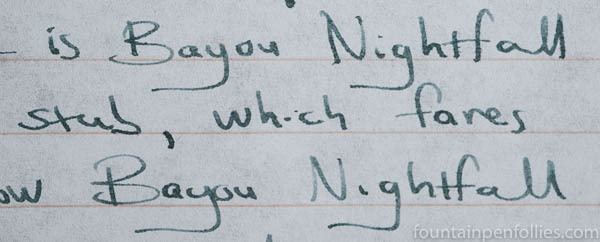 - is Bayou Nightfall
stub, which fares
ow Bayou Nightfall
fountainpenfollies.com